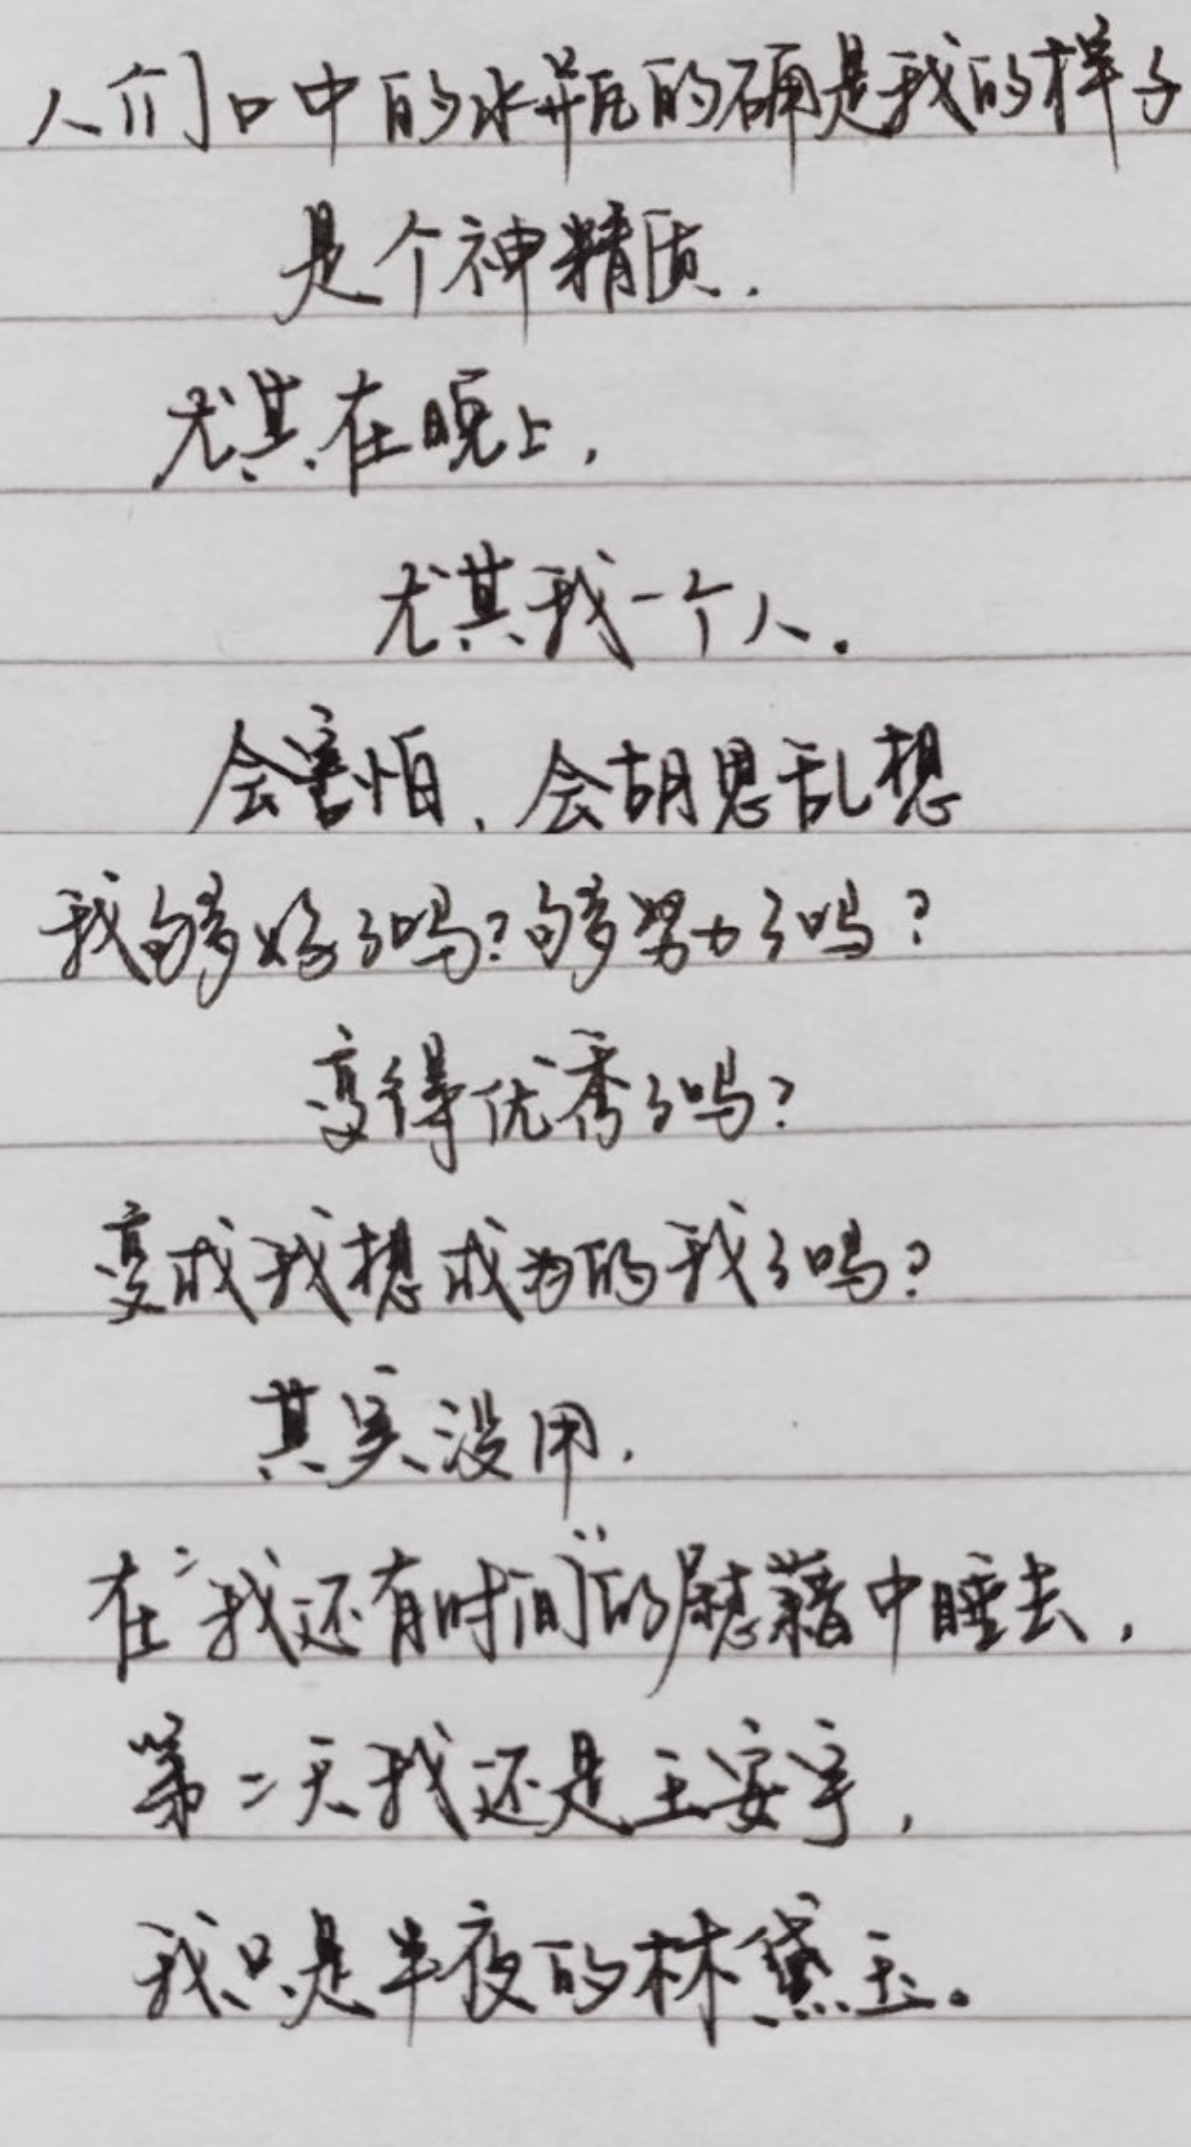 人们口中的水瓶的确是我的样子
是个神精质.
尤其在晚上,
尤其我一个人.
会害怕、会胡思乱想
我够好了吗?够努力了吗?
变得优秀了吗?
变成我想成为的我了吗?
其实没用.
在“我还有时间”的慰藉中睡去,
第二天我还是王安宇,
我只是半夜的林黛玉。